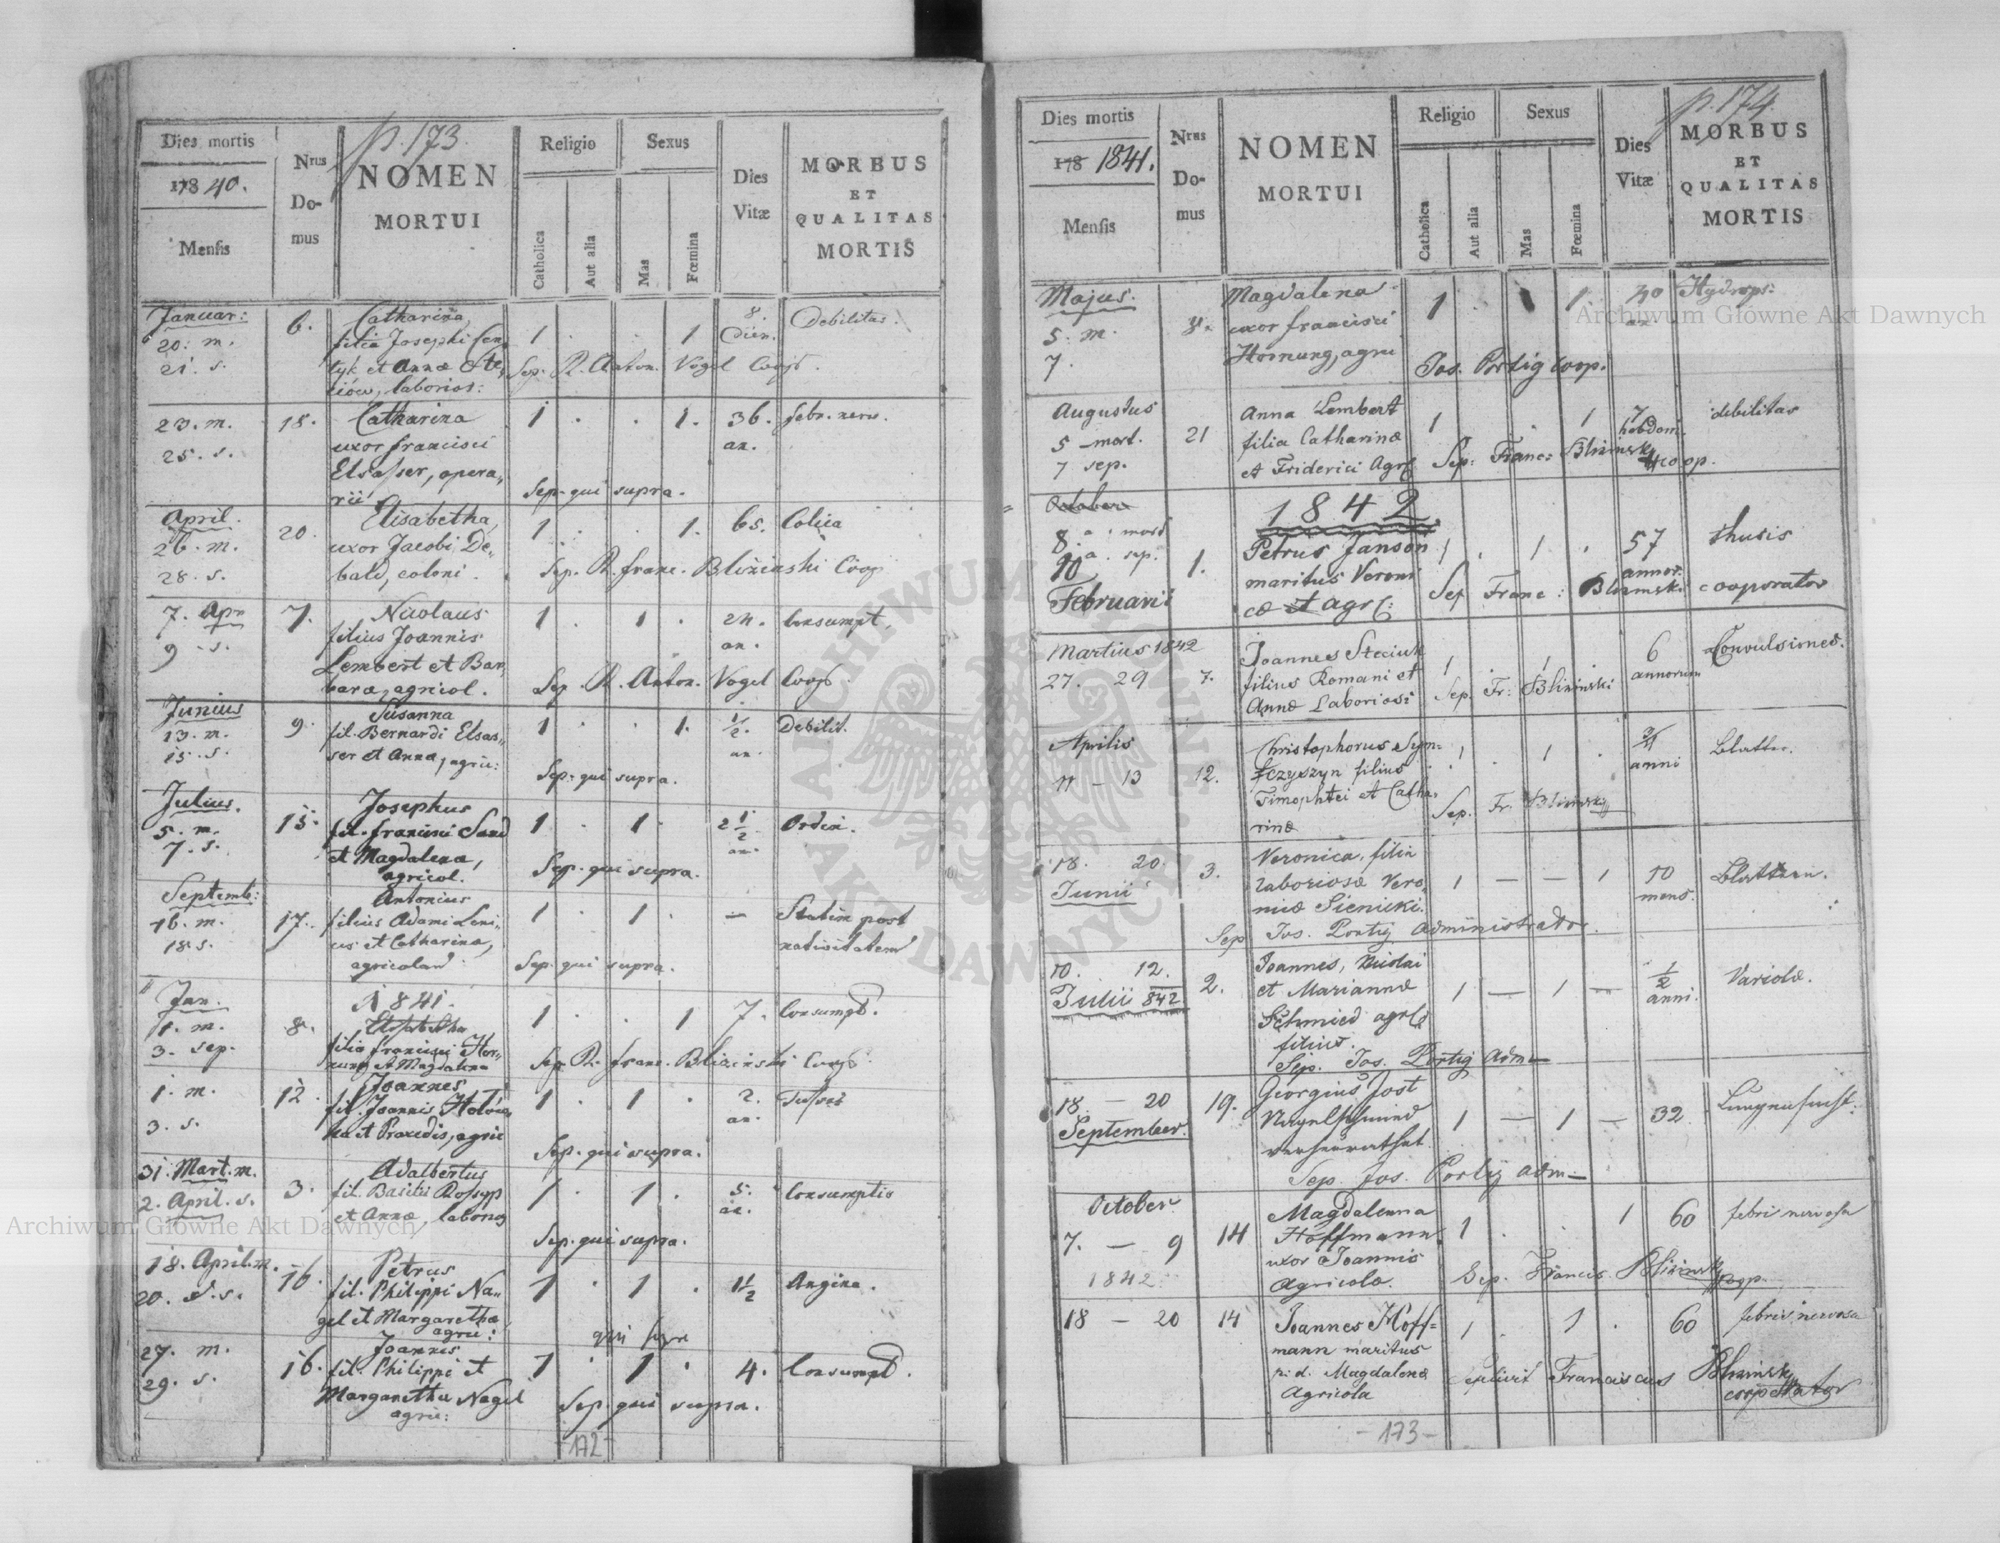 p. 173.
Dies mortis
178 40.
Mensis
Nrus
Do-
mus
NOMEN
MORTUI
Religio
Catholica
Aut alia
Sexus
Mas
Fœmina
Dies
Vitæ
MORBUS
ET
QUALITAS
MORTIS
Januar:
20. m.
21. s.
6.
Catharina
filia Josephi
et Annæ
laborios:
1 . . 1
8.
dier.
Debilitas.
Sep. R. Anton. Vogel Coop.
23. m.
25. s.
18.
Catharina
uxor francisci
Elsasser, opera,,
rii
1 . . 1.
36.
an.
febr. nerv.
Sep. qui supra.
April.
26. m.
28. s.
20.
Elisabetha,
uxor Jacobi De,,
bald, coloni.
1 . . 1.
65.
Colica
Sep. R. franc. Bliziński Coop
7. Apr
9 . s.
7.
Nicolaus
filius Joannis
Lembert et Bar,,
baræ, agricol.
1 . 1 .
24.
an.
Consumpt.
Sep. R. Anton. Vogel Coop.
Junius
13. m.
15. s.
9.
Susanna
fil. Bernardi Elsas,,
ser et Annæ, agric:
1 . . 1.
1/2.
an.
Debilit.
Sep. qui supra.
Julius.
5. m.
7. s.
15.
Josephus
fil. francisci Sand
et Magdalenæ,
agricol.
1 . 1 .
2 1/2
an.
Ordin.
Sep. qui supra.
Septemb:
16. m.
18. s.
17.
Antonius
filius Adami Leni,,
us et Catharinæ,
agricolarum
1 . 1 .
—
Statim post
nativitatem
Sep. qui supra.
Jan.
1. m.
3. sep.
8.
1841.
Elisabetha
filia francisci Hor,,
nung et Magdalenæ
1 . . 1
7.
Consumpt.
Sep. R. franc. Bliziński Coop.
1. m.
3. s.
12.
Joannes
fil. Joannis
et Praxedis, agric
1 . 1 .
2.
an.
Tussis
Sep. qui supra.
31. Mart. m.
2. April. s.
3.
Adalbertus
fil. Basilii Rossyp
et Annæ, laborios
1 . 1 .
5.
an.
Consumptio
Sep. qui supra.
18. April. m.
20. d. s.
16.
Petrus
fil. Philippi Na,,
gel et Margarethæ,
agric:
1 . 1 .
1 1/2
Angina.
qui supra
27. m.
29. s.
16.
Joannes
fil. Philippi et
Margaretha Nagel
agric:
1 . 1 .
4.
Consumpt.
Sep. qui supra.
-172-
p. 174.
Dies mortis
178 1841.
Mensis
Nrus
Do-
mus
NOMEN
MORTUI
Religio
Catholica
Aut alia
Sexus
Mas
Fœmina
Dies
Vitæ
MORBUS
ET
QUALITAS
MORTIS
Majus.
5. m.
7.
8.
Magdalena
uxor francisci
Hornung, agric
1 . . 1
40
an
Hydrops:
Jos. Portig Coop.
Augustus
5 mort.
7 sep.
21
Anna Lembert
filia Catharinæ
et Friderici Agrc
1 . 1
7
hebdom.
debilitas
Sep: Franc: Bliziński
coop.
October
1842
8.a mort
10a sep.
Februarii
1.
Petrus Janson
maritus Veroni
cæ et agrc:
1 . 1 .
57
annor.
thisis
Sep Franc: Bliziński cooperator
Martius 1842
27. 29
7.
Joannes Steciuk
filius Romani et
Annæ Laboriosi
1 1
6
annorum
Convulsiones.
Sep. Fr: Bliziński
Aprilis
11 - 13
12.
Christophorus Sym=
czyszyn filius
Timophtei et Catha,
rinæ
1 . 1 .
3/4
anni
Blatter.
Sep. Fr. Bliziński
18. 20.
Junii
3.
Veronica, filia
laboriosæ Vero,
nicæ Sienicki.
1 — — 1
10
mens.
Blattern.
Sep Jos. Portig Administrator.
10. 12.
Julii 842
2.
Joannes, Nicolai
et Mariannæ
Schmied agrc
filius.
1 — 1 —
1/2
anni.
Variolæ.
Sep. Jos. Portig Adm—
18 — 20
September.
19.
Georgius Jost
Nagelschmied
verheirathet.
1 — 1 —
32
Lungensucht.
Sep. Jos. Portig Adm—
October
7. — 9
1842
14
Magdalenna
Hoffmann.
uxor Joannis
Agricolæ.
1 . . 1
60
febris nervosa
Sep. Francis. Bliziński
Coop.
18 — 20
14
Joannes Hoff=
mann maritus
p. d. Magdalenæ
Agricola
1 . 1 .
60
febris nervosa
sepelivit Franciscus Bliziński
cooperator
-173-
Archiwum Główne Akt Dawnych
Archiwum Główne Akt Dawnych
ARCHIWUM GŁÓWNE AKT DAWNYCH